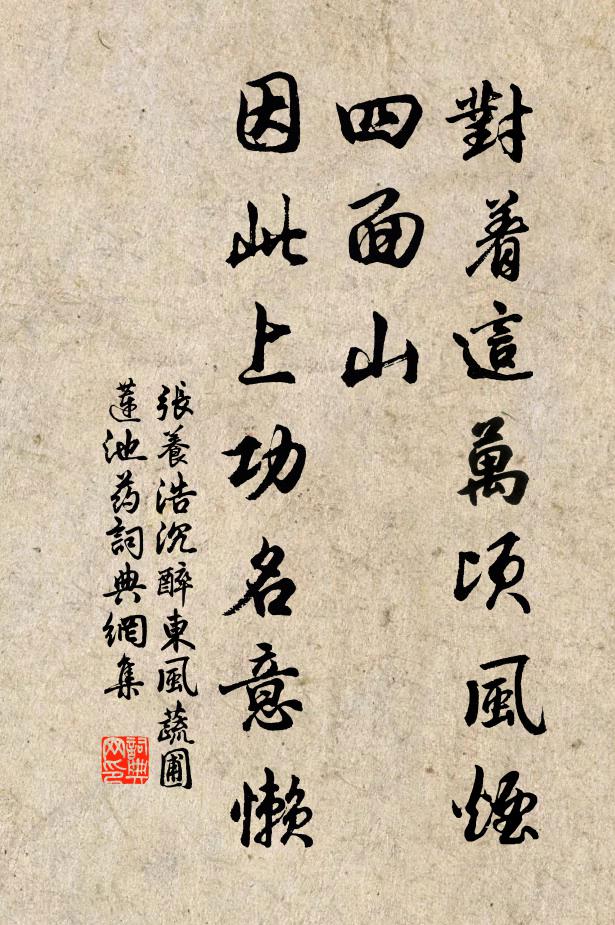 對着這萬頃風煙
四面山
因此上功名意懶
張養浩沉醉東風蔬圃
蓮池药詞典網集
詞典
网印